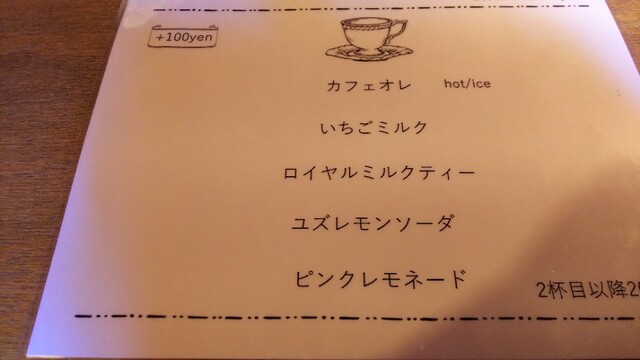 +100yen
カフェオレ hot/ice
いちごミルク
ロイヤルミルクティー
ユズレモンソーダ
ピンクレモネード
2杯目以降2